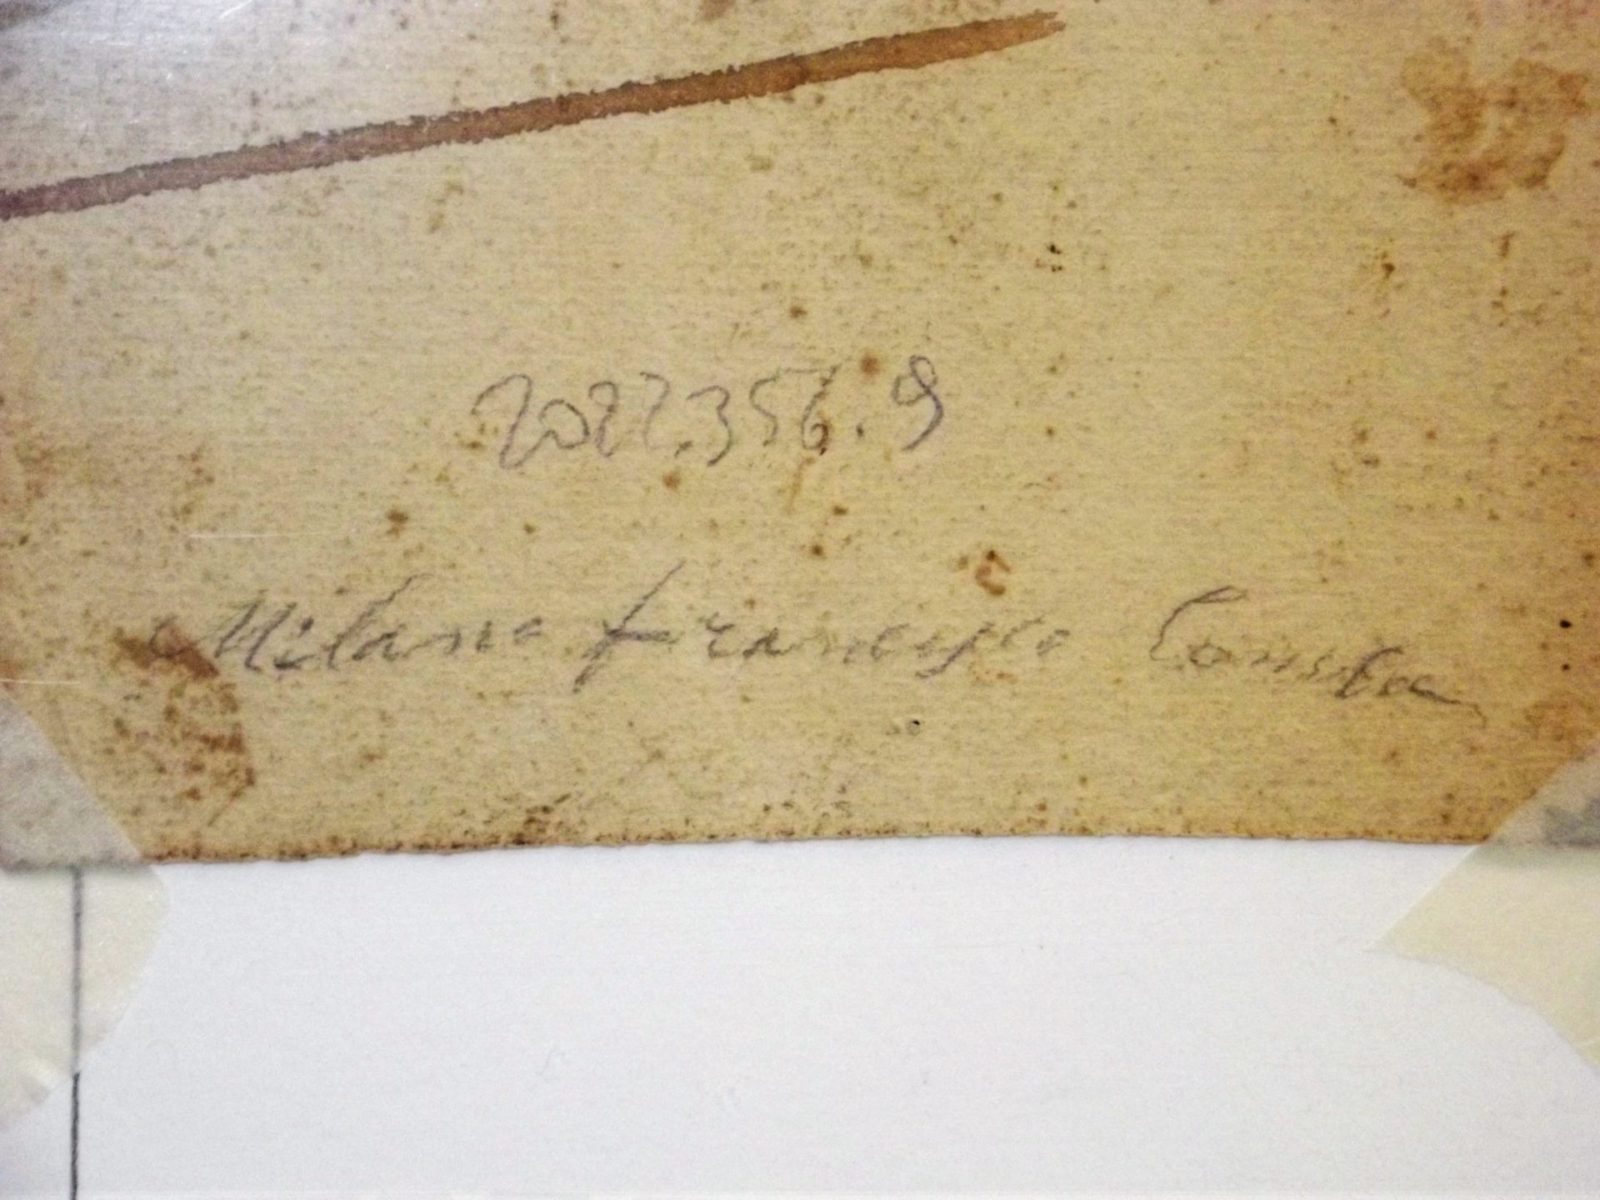 2022.356.9
Milano Francesco Comba